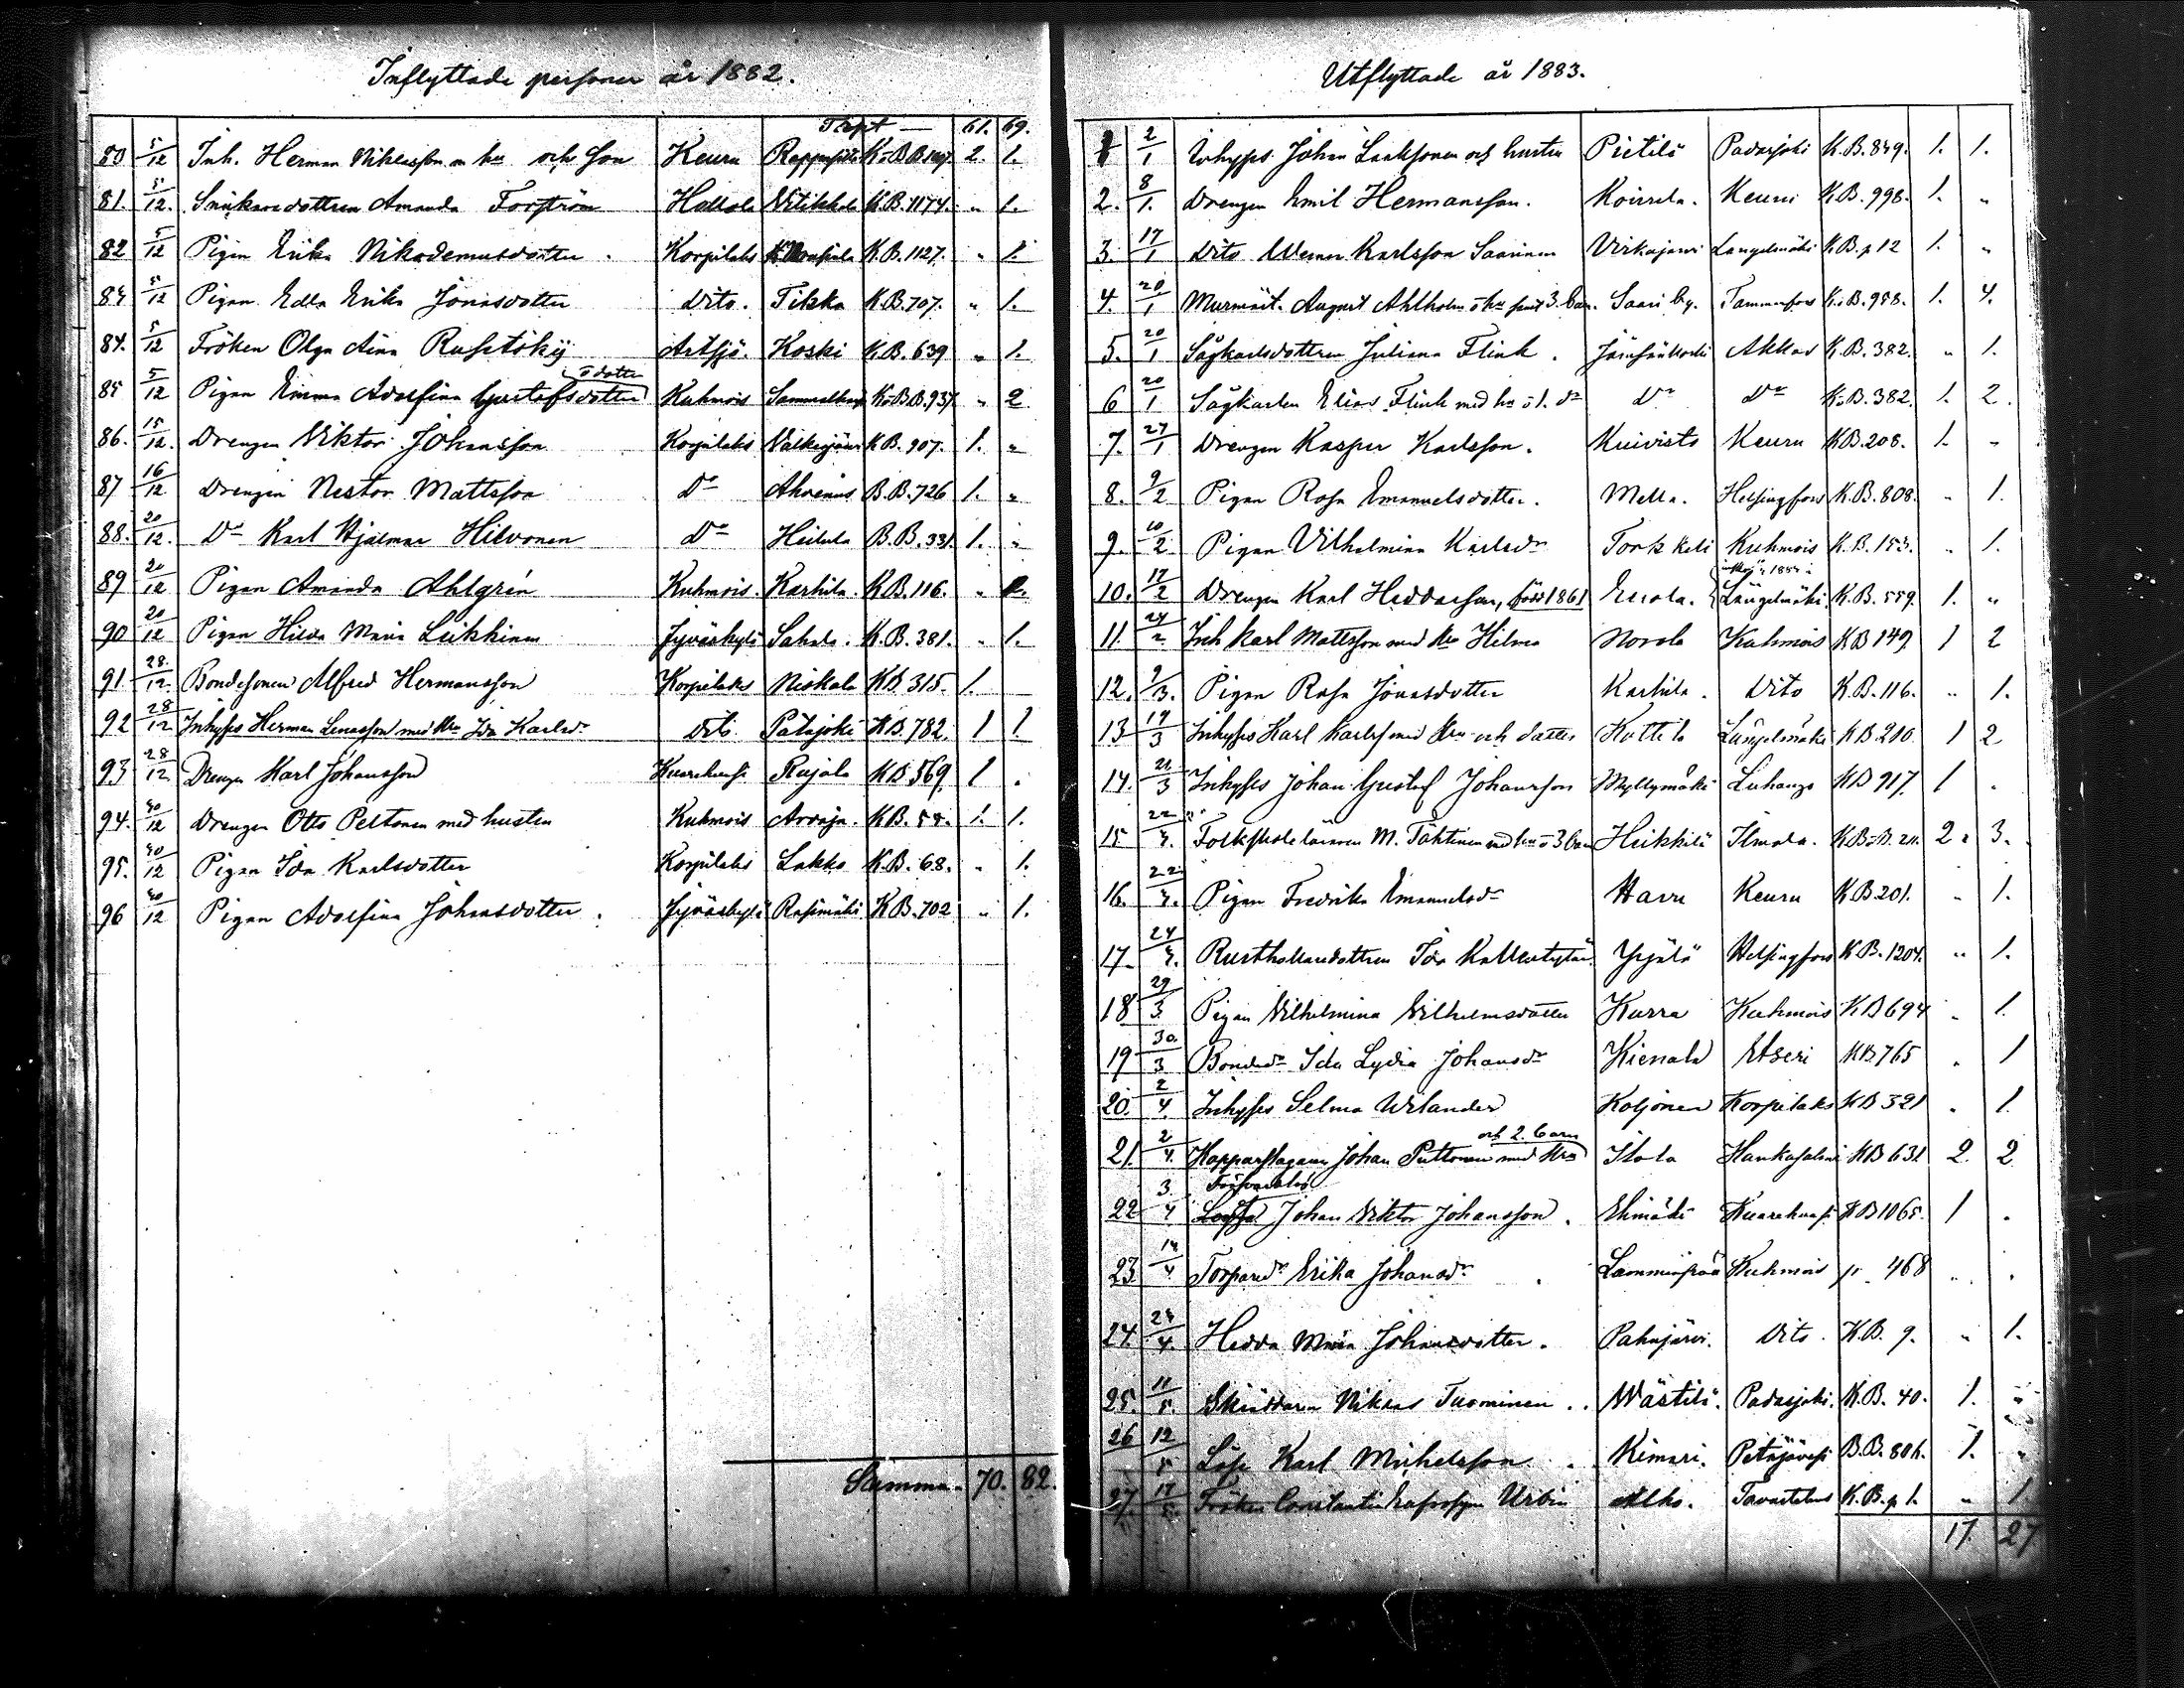 Inflyttade personer år 1882.
Trspt — 61. 69.
80 5/12 Inh. Herman Niklasson m hu och son Keuru K.B.B. 2. 1.
81. 5/12. Snickaredottren Amanda Forström Hollola Vitikkala K.B. 1174. " 1.
82 5/12 Pigan Erika Nikodemusdotter Korpilaks K.B. 1127. " 1.
83 5/12 Pigan Edla Erika Jonasdotter Dito. Tikka K.B. 707. " 1.
84. 5/12 Fröken Olga Aina Artsjö. Koski K.B. 639 " 1.
o dotter
85 5/12 Pigan Emma Adolfina Gustafsdotter Kuhmois K.B.B. 937 " 2
86. 15/12. Drengen Viktor Johansson Korpilaks Välkesjärvi K.B. 907. 1. "
87 16/12 Drengen Nestor Mattsson Do Ahvenus B.B. 726 1. "
88. 20/12. Do Karl Hjalmar Hilvonen Do Heilala B.B. 331 1. "
89 20/12 Pigan Amanda Ahlgrén Kuhmois. Karhila. K.B. 116. "
90 20/12 Pigan Hilda Maria Leikkinen Jyväskylä Sahala. K.B. 381. " 1.
91 28./12. Bondesonen Alfred Hermansson Korpilaks Niskala KB. 315. 1.
92 28/12 Inhyses Herman Lenasson med hu Ida Karlsdr Dito Patajoki KB. 782. 1 1
93 28/12 Drengen Karl Johansson Kuorehvesi Rujala KB 569 1 .
94. 30/12 Drengen Otto Peltonen med hustru Kuhmois Arvaja. K.B. 58. 1. 1.
95. 30/12 Pigan Ida Karlsdotter Korpilaks Lakko K.B. 68. " 1.
96 30/12 Pigan Adolfina Johansdotter. Jyväskylä Rasimäki K.B. 702 " 1.
Summa. 70. 82.
Utflyttade år 1883.
1 2/1 Inhyses Johan Laaksonen och hustru Pietilä Padasjoki K.B. 849. 1. 1.
2. 8/1. Drengen Emil Hermansson. Koivula. Keuru K.B. 998. 1. "
3. 17/1 Dito Werner Karlsson Saarinen Virkajärvi Längelmäki K.B. p 12 1. "
4. 20/1 Murmäst. August Ahlholm o hu samt 3 barn. Saari by. Tammerfors K.B. 958. 1. 4.
5. 20/1 Sågkarlsdottren Juliana Flink. Jämsänkoski Akkas K.B. 382. " 1.
6 20/1 Sågkarlen Elias Flink med hu o 1. dr Do Do K.B. 382. 1. 2.
7. 27/1 Drengen Kasper Karlsson. Kuivisto Keuru K.B. 208. 1. "
8. 9/2 Pigan Rosa Emanuelsdotter. Mella. Helsingfors K.B. 808. " 1.
9. 10/2. Pigan Vilhelmina Karlsdr Torkkeli Kuhmois K.B. 153. " 1.
10. 17/2 Drengen Karl Heddasson, född 1861 Eerola. Längelmäki K.B. 559. 1. "
11. 24/2 Inh Karl Mattsson med hu Hilma Norola Kuhmois KB 149 1 2
12. 9/3. Pigan Rosa Jonasdotter Karhila. Dito K.B. 116. " 1.
13 14/3 Inhyses Karl Karlss med hu och dotter Kottila Längelmäki KB 210. 1 2
14. 21/3 Inhyses Johan Gustaf Johansson Myllymäki Luhango KB 917 1 .
15 22/3. Folkskoleläraren M. Tähtinen med hu o 3 barn Heikkilä Ilmola. K.B. 2. 3.
16. 22/3. Pigan Fredrika Emanuelsdr Harju Keuru K.B. 201. " 1.
17. 24/3. Rusthollaredottren Ida Yrjölä Helsingfors K.B. 1204. " 1.
18 29/3. Pigan Vilhelmina Vilhelmsdotter Kurra Kuhmois KB 694 . 1.
19 30/3 Bondedr Ida Lydia Johansdr Kienala Etseri KB 765 . 1
20. 2/4. Inhyses Selma Wilander Koljonen Korpilaks KB 321 . 1.
och 2. barn
21. 2/4. Kopparslagaren Johan Puttonen med hu Ilola Hankasalmi KB 631 2. 2
Försvarslös
22 3/4 Johan Viktor Johansson. Elimäki Kuorehvesi KB 1065. 1 .
23 14/4 Torpardr Erika Johansdr Lamminpää Kuhmois p. 468 . .
24. 28/4. Hedda Maria Johansdotter. Pahajärvi. Dito. K.B. 9. " 1.
25. 11/5. Skräddaren Niklas Tuominen.. Wästilä. Padasjoki. K.B. 40. 1. "
26 12/5 Löse Karl Mickelsson. Kimari. Petäjävesi B.B. 806. 1. "
27. 17/5. Fröken Urbin Alho. Tavastehus K.B. p 1. " 1
17. 27